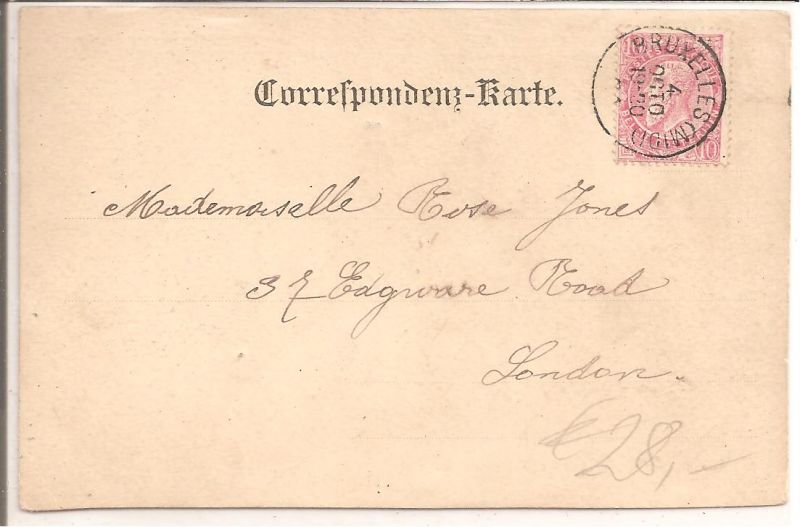 Correspondenz-Karte.
BRUXELLES (MIDI)
4
OCTO
10
Mademoiselle Rose Jones
37 Edgware Road
London.
€28,-